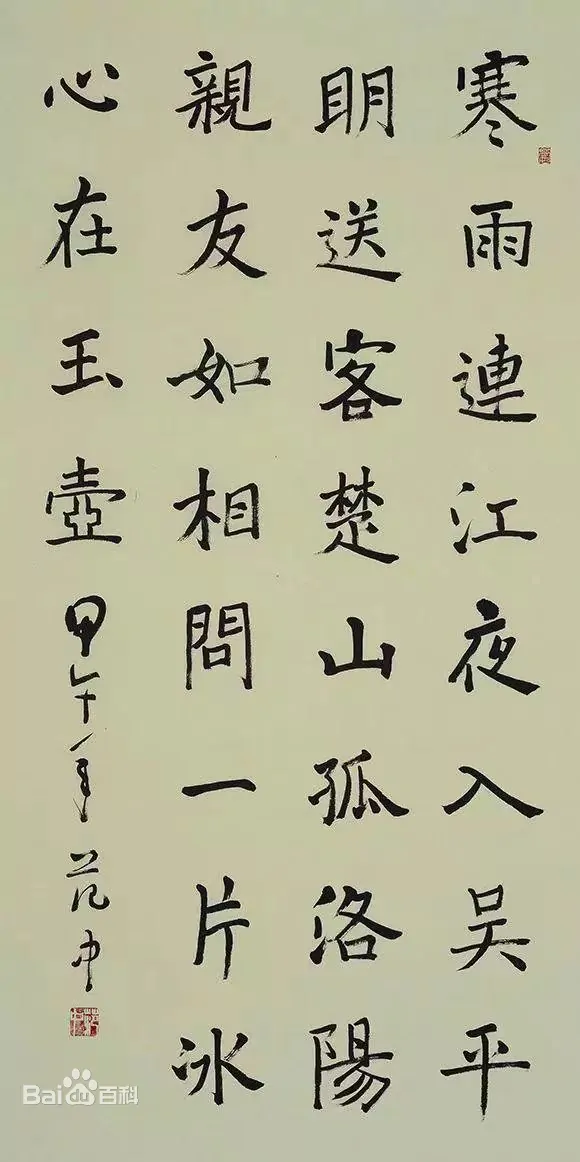 寒雨連江夜入吴平
明送客楚山孤洛陽
親友如相問一片冰
心在玉壺甲午年范中
Bai百科